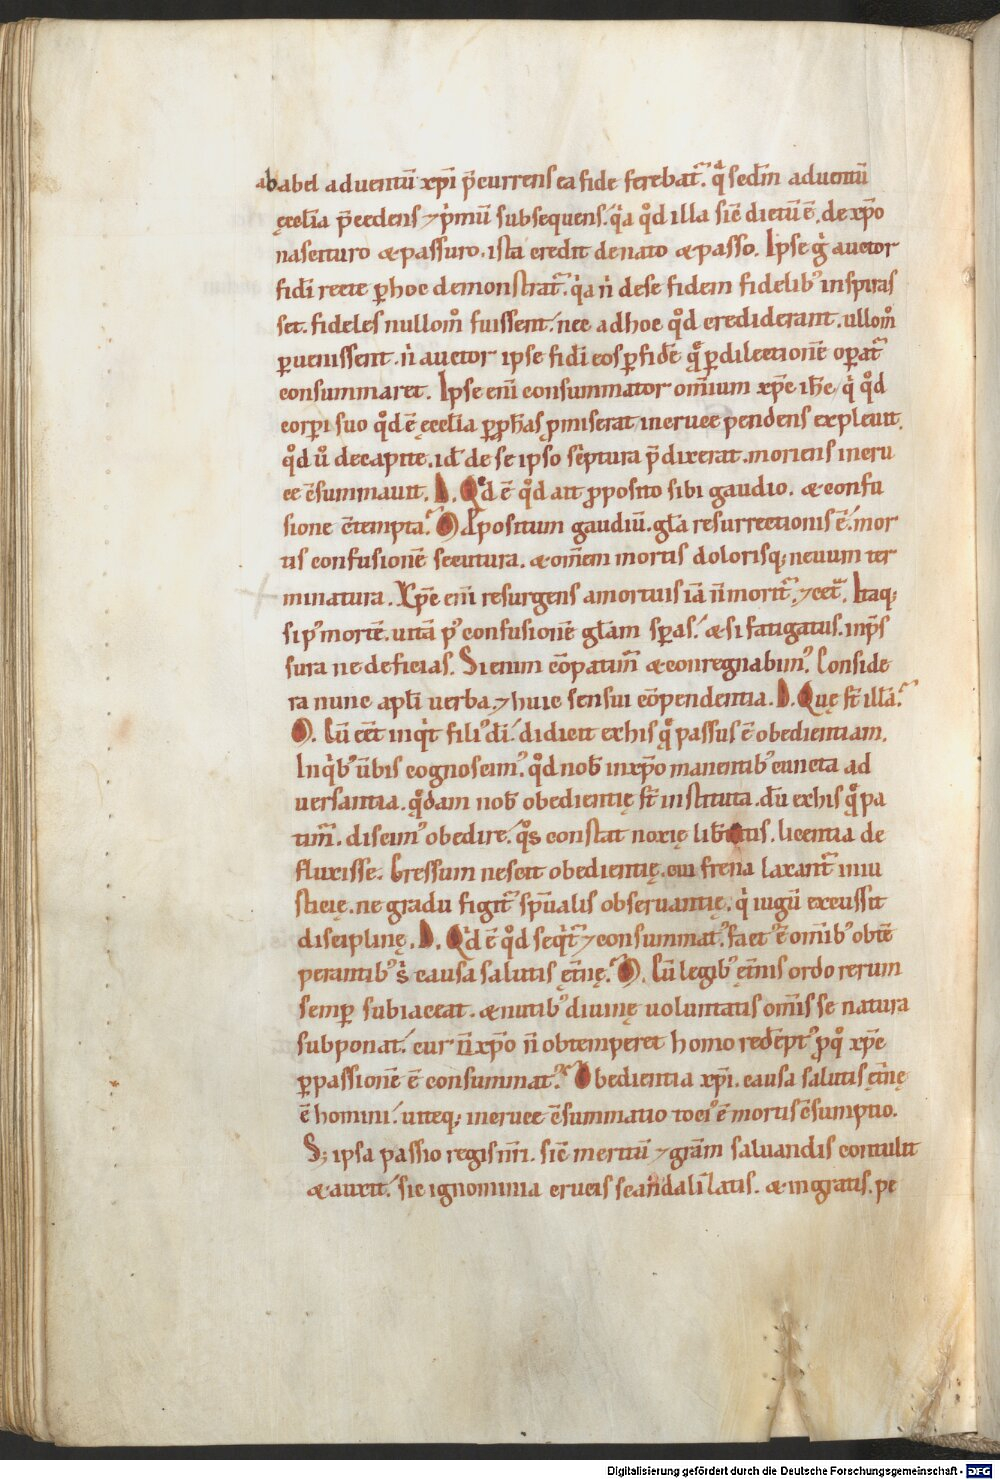 ab abel aduentū xp̄i p̄currens ea fide ferebat᷑. q̄ sed̄m aduentū
ęccl̄ia p̄cedens ⁊ p̍mū subsequens. q̍a qͦd illa sic̄ dictū ē. de xp̄o
nascituro & passuro. ista credit de nato & passo. Ipse g̍ auctor
fidi recte ꝑ hoc demonstrat᷑. q̍a n̍ de se fidem fidelibꝰ inspiras
set. fideles nullom̊ fuissent. nec ad hoc qͦd crediderant. ullom̊
ꝑuenissent. n̍ auctor ipse fidi eos ꝑ fidē q̄ ꝑ dilectionē oꝑat᷑
consummaret. Ipse eni consummator om̄ium xp̄c ih̄c q̍ qͦd
corꝑi suo qͦd ē ęccl̄ia ꝑ ꝓph̄as ꝓmiserat in cruce pendens expleuit.
qͦd ů de capite. id̄ de se ipso sc̄ptura p̄dixerat. moriens in cru
ce c̄summauit. D. Qͥd ē qͦd ait ꝓposito sibi gaudio. & confu
sione c̄tempta. M Ꝓpositum gaudiū. gl̄a resurrectionis ē. mor
tis confusionē secutura. & om̄em mortis dolorisq; neuum ter
minatura. Xp̄c eni resurgens a mortuis iā n̄ morit᷑. ⁊ cet᷑. Itaq;
si pꝰ mortē. uitā pꝰ confusionē gl̄am sꝑas. & si fatigatus. in p̄s
sura ne deficias. Si enim cōpatim᷑ & conregnabimꝰ. Conside
ra nunc apl̄i uerba. ⁊ huic sensui cōpendentia. D. Quę st̄ illa.
M. Cū eet̄ inq̍t filiꝰ di. didicit ex his q̄ passus ē obedientiam.
In q̍bꝰ ūbis cognoscimꝰ. qͦd nob̄ in xp̄o manentibꝰ cuncta ad
uersantia. q̊dam nob̄ obedientię st̄ instituta. dū ex his q̄ pa
tim᷑. discimꝰ obedire. q̊s constat noxię lib̄tatis. licentia de
fluxisse. Gressum nescit obedientię. cui frena laxant᷑ iniu
sticię. ne gradu figit᷑ sp̄ualis obseruantię. q̍ iugū excussit
disciplinę. D. Qͥd ē qͦd seq̍t᷑ ⁊ consummatꝰ. factꝰ ē om̄ibꝰ obtē
perantibꝰ s̍ causa salutis ęt̄nę. M. Cū legibꝰ ęt̄nis ordo rerum
semꝑ subiaceat. & nutibꝰ diuinę uoluntatis om̄is se natura
subponat. cur n̄ xp̄o n̄ obtemperet homo redēptꝰ ꝓ qͦ xp̄c
ꝑ passionē ē consummatꝰ. Obedientia xp̄i. causa salutis ęt̄nę
ē homini. uiteq; in cruce c̄summatio tociꝰ ē mortis c̄sumptio.
S; ipsa passio regis nr̄i. sic̄ meritū ⁊ grām saluandis contulit
& auxit. sic ignominia crucis scandali latis. & ingratis. pe
Digitalisierung gefördert durch die Deutsche Forschungsgemeinschaft - DFG